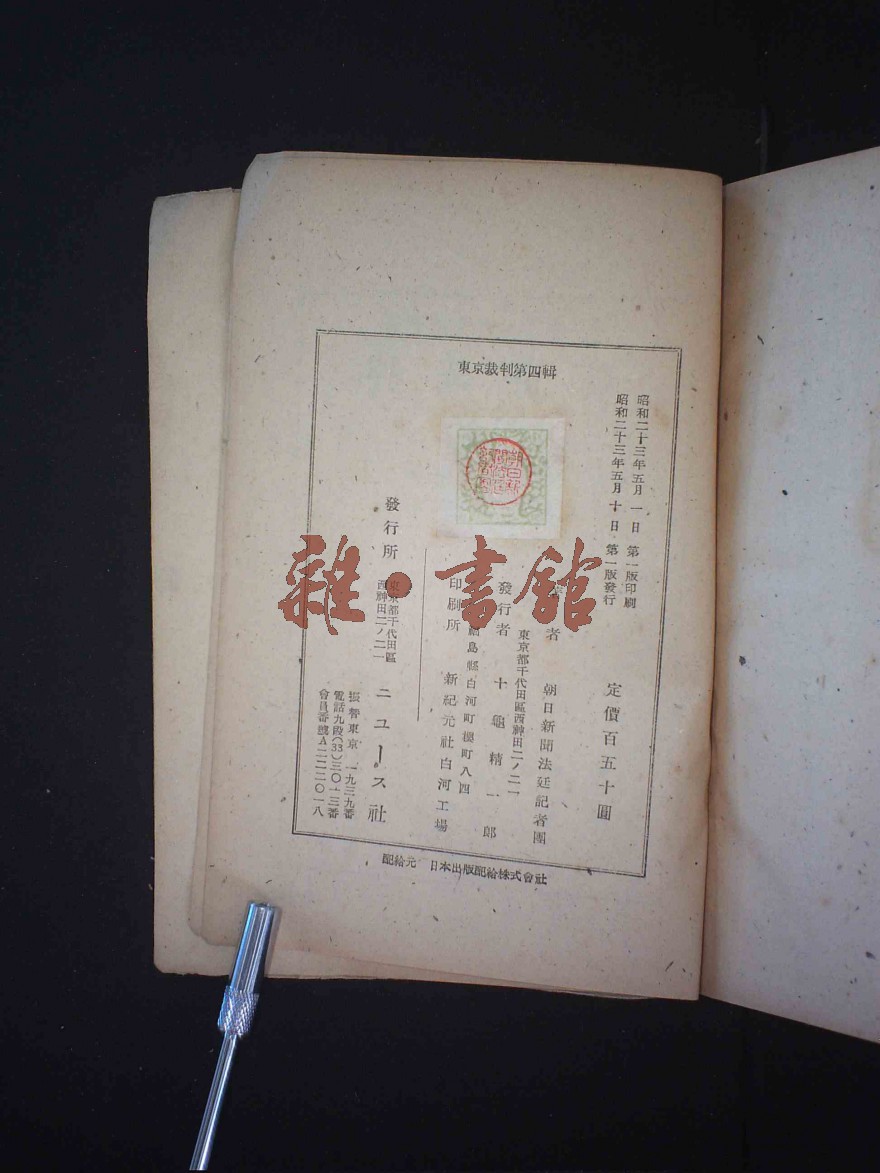 東京裁判第四輯
昭和二十三年五月一日 第一版印刷
昭和二十三年五月十日 第一版發行
定價百五十圓
者 朝日新聞法廷記者團
東京都千代田區西神田二ノ二一
發行者 十龜精一郎
島縣白河町櫻町八四
印刷所 新紀元社白河工場
發行所
東京都千代田區
西神田二ノ二一
ニュース社
振替東京一一九三九番
電話九段(33)三〇一三番
會員番號A二二二〇一八
配給元 日本出版配給株式會社
雜·書館